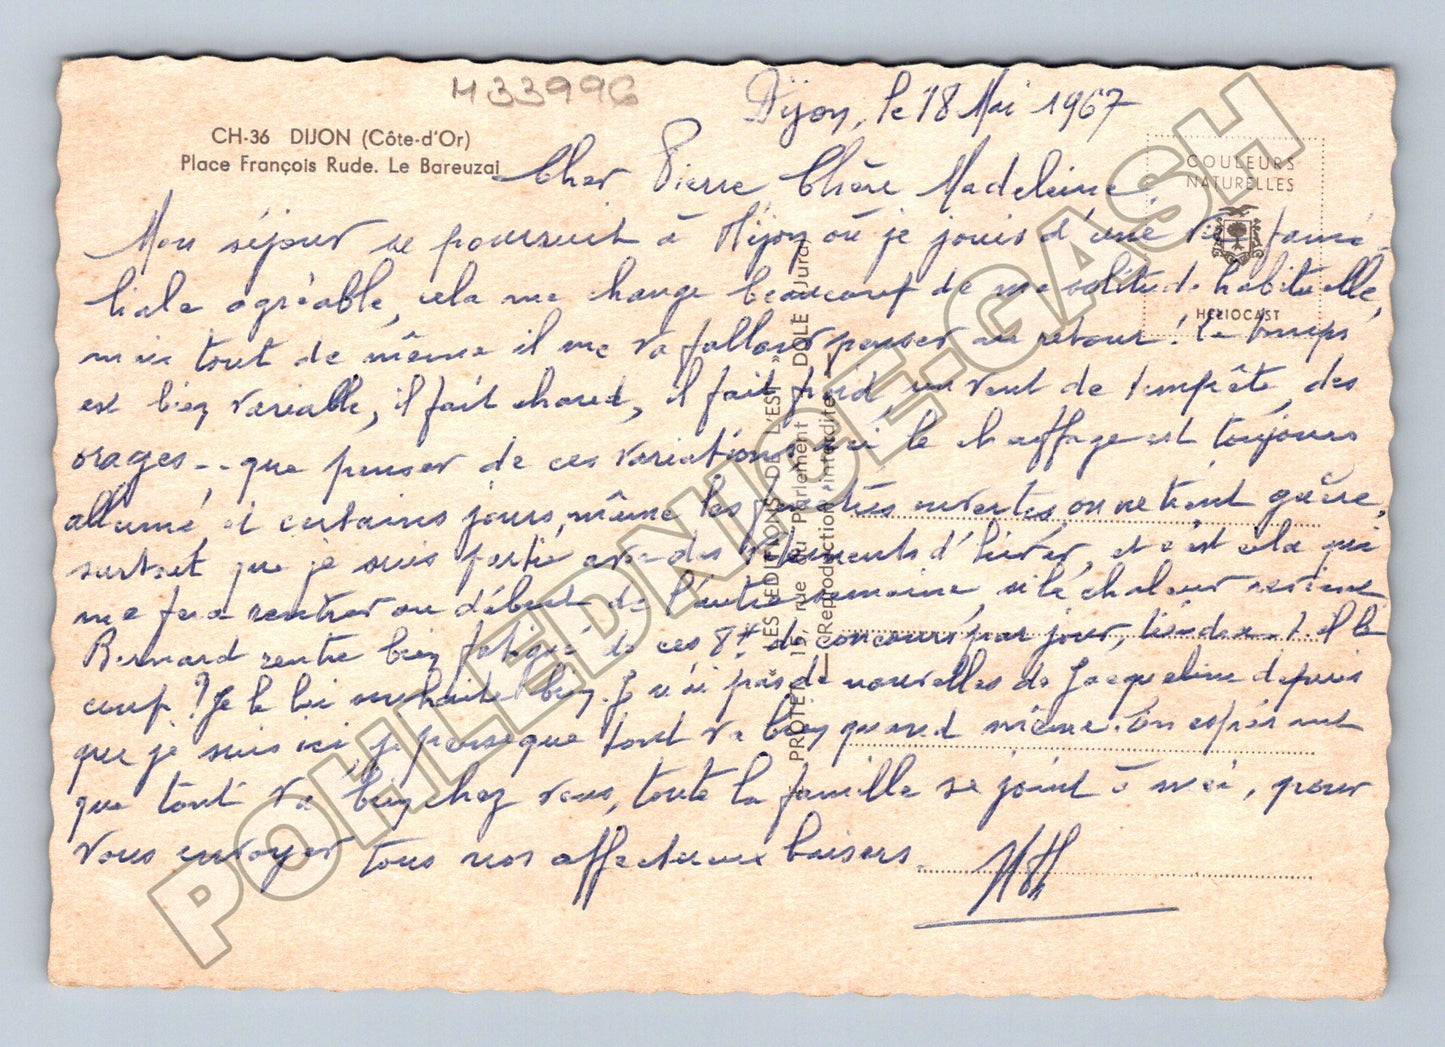 H33996
CH-36 DIJON (Côte-d'Or)
Place François Rude. Le Bareuzai
COULEURS
NATURELLES
HELIOCAST
PROTET LES EDITIONS DE L'EST
15, rue du Parlement DOLE (Jura)
Reproduction interdite
Dijon, le 18 Mai 1967
Cher Pierre Chère Madeleine
Mon séjour se poursuit à Dijon où je jouis d'une vie fami-
liale agréable, cela me change beaucoup de ma solitude habituelle,
mais tout de même il me va falloir penser au retour! le temps
est bien variable, il fait chaud, il fait froid un vent de tempête, des
orages -- que penser de ces variations, ici le chauffage est toujours
allumé, et certains jours, même les fenêtres ouvertes on ne tient guère,
surtout que je suis partie avec des vêtements d'hiver, et c'est cela qui
me fera rentrer au début de l'autre semaine si la chaleur revient
Bernard rentre bien fatigué de ces 8H de concours par jour, tiendra-t-il le
coup? Je le lui souhaite bien. Je n'ai pas de nouvelles de Jacqueline depuis
que je suis ici, je pense que tout va bien quand même. En espérant
que tout va bien chez vous, toute la famille se joint à moi, pour
vous envoyer tous nos affectueux baisers.
POHLEDNICE-GASH